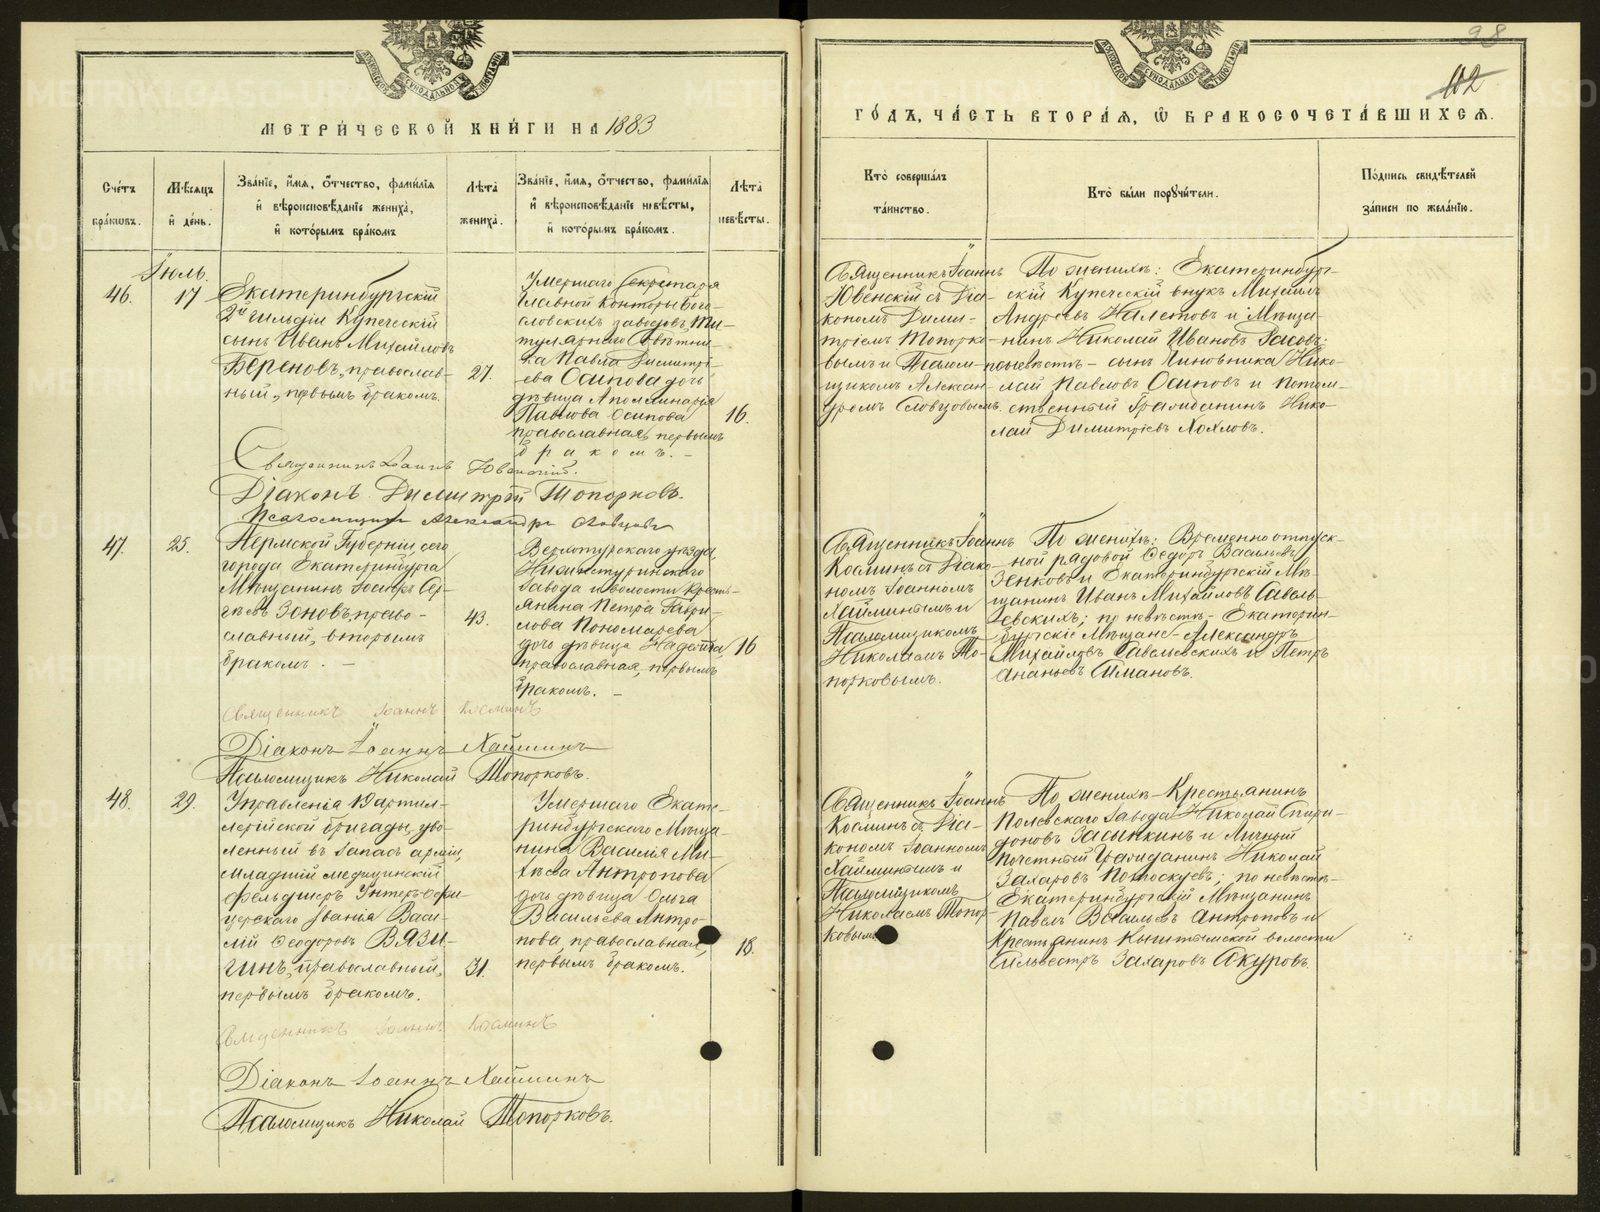 МЕТРИ́ЧЕСКОЙ КНИ́ГИ НА 1883
Сче́тъ бра́ковъ.
Мѣ́сяцъ и҆ де́нь.
Зва́нїе, и҆́мя, ѻ҆́тчество, фами́лїя и҆ вѣроисповѣ́данїе жениха̀, и҆ кото́рымъ бра́комъ
Лѣ́та жениха̀.
Зва́нїе, и҆́мя, ѻ҆́тчество, фами́лїя и҆ вѣроисповѣ́данїе невѣ́сты, и҆ кото́рымъ бра́комъ.
Лѣ́та невѣ́сты.
98
102
ГО́ДЪ, ЧА́СТЬ ВТОРА́Я, Ѡ҆ БРАКОСОЧЕТА́ВШИХСЯ.
Кто̀ соверша́лъ та́инство.
Кто̀ бы́ли порꙋчи́тели.
По́дпись свидѣ́телей за́писи по жела́нїю.
Іюль.
46.
17
Екатеринбургскій
2й гильдіи Купеческій
сынъ Иванъ Михайловъ
Береновъ, православ-
ный, первымъ бракомъ.
27.
Умершаго Секретаря
Главной Конторы Бого-
словскихъ заводовъ, Ти-
тулярнаго Совѣтни-
ка Павла Димитрі-
ева Осипова дочь
дѣвица Аполлинарія
Павлова Осипова
православная, первымъ
бракомъ. –
16.
Священникъ Іоаннъ
Ювенскій съ Діа-
кономъ Дими-
тріемъ Топорко-
вымъ и Псалом-
щикомъ Алексан-
дромъ Словцовымъ.
По женихѣ: Екатеринбург-
скій Купеческій внукъ Михаилъ
Андреевъ Налетовъ и Мѣща-
нинъ Николай Ивановъ Гасовъ;
по невѣстѣ – сынъ Чиновника Нико-
лай Павловъ Осиповъ и Потом-
ственный Гражданинъ Нико-
лай Димитріевъ Хохловъ.
Священникъ Іоаннъ Ювенскій.
Діаконъ Димитрій Топорковъ.
Псаломщикъ Александръ Словцовъ
47.
25.
Пермской Губерніи, сего
города Екатеринбурга
Мѣщанинъ Іосифъ Сер-
гѣевъ Зоновъ, право-
славный, вторымъ
бракомъ. –
43.
Верхотурскаго уѣзда,
Нижнетуринскаго
завода и волости Кресть-
янина Петра Гаври-
лова Пономарева
дочь дѣвица Надежда,
православная, первымъ
бракомъ. –
16
Священникъ Іоаннъ
Косминъ съ Діако-
номъ Іоанномъ
Хайминымъ и
Псаломщикомъ
Николаемъ То-
порковымъ.
По женихѣ: Временно отпуск-
ной рядовой Ѳедоръ Васильевъ
Зенковъ и Екатеринбургскій Мѣ-
щанинъ Иванъ Михайловъ Савель-
евскихъ; по невѣстѣ – Екатерин-
бургскіе Мѣщане – Александръ
Михайловъ Савельевскихъ и Петръ
Ананьевъ Симановъ.
Священникъ Іоаннъ Косминъ
Діаконъ Іоаннъ Хайминъ
Псаломщикъ Николай Топорковъ.
48.
29.
Управленія 19 артил-
лерійской бригады, уво-
ленный въ запасъ арміи,
младшій медицинскій
фельдшеръ Унтеръ-офи-
церскаго званія Васи-
лій Ѳеодоровъ Вязи-
гинъ, православный,
первымъ бракомъ.
31.
Умершаго Екате-
ринбургскаго Мѣща-
нина Василія Ми-
хѣева Антропова
дочь дѣвица Ольга
Васильева Антро-
пова, православная,
первымъ бракомъ.
18.
Священникъ Іоаннъ
Косминъ съ Діа-
кономъ Іоанномъ
Хайминымъ и
Псаломщикомъ
Николаемъ Топор-
ковымъ
По женихѣ – Крестьянинъ
Полевскаго завода Николай Спири-
доновъ Засыпкинъ и Личный
Почетный Гражданинъ Николай
Захаровъ Потоскуевъ; по невѣстѣ –
Екатеринбургскій Мѣщанинъ
Павелъ Васильевъ Антроповъ и
Крестьянинъ Кыштымской волости
Сильвестръ Захаровъ Акуровъ.
Священникъ Іоаннъ Косминъ
Діаконъ Іоаннъ Хайминъ
Псаломщикъ Николай Топорковъ.